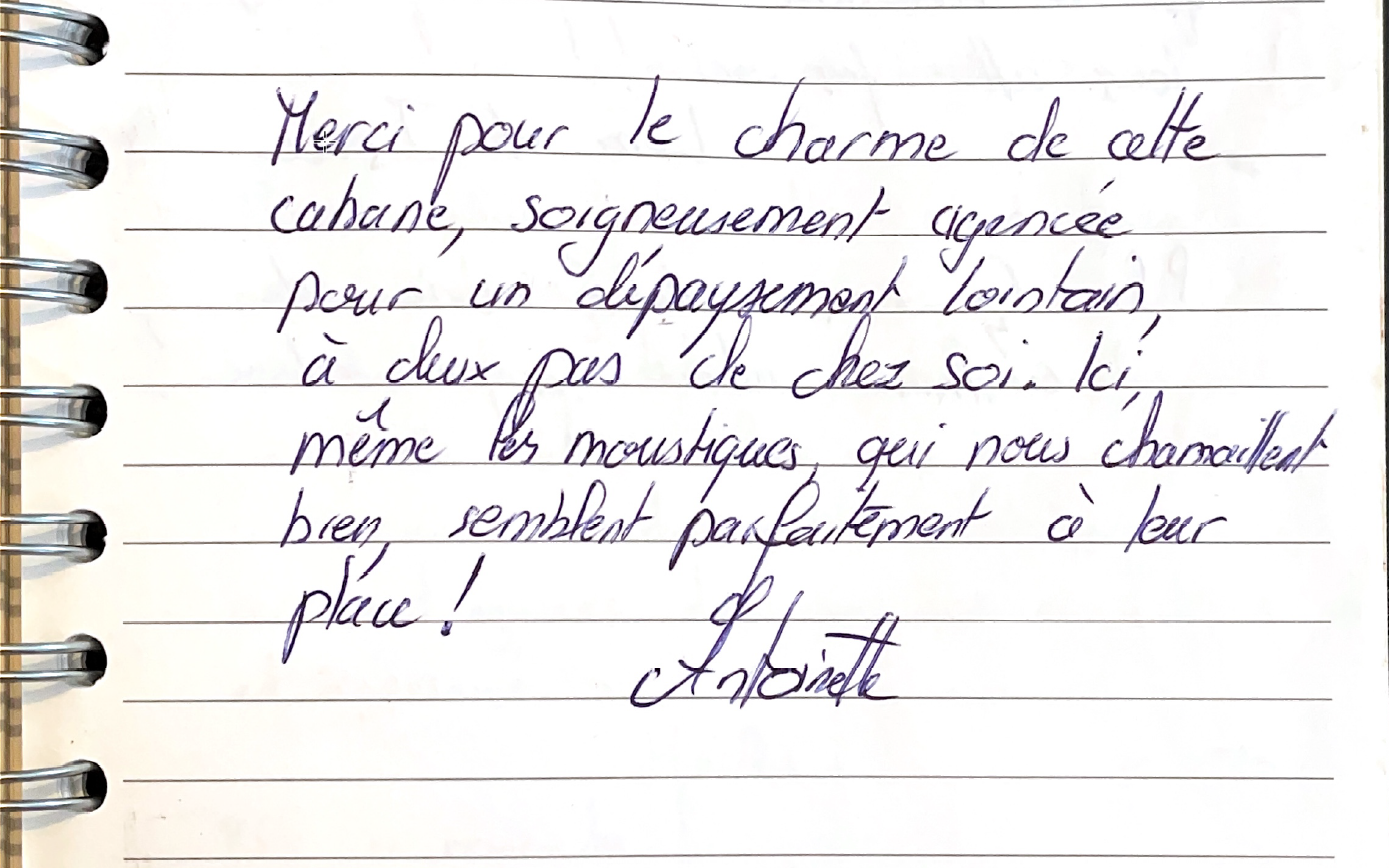 Merci pour le charme de cette
cabane, soigneusement agencée
pour un dépaysement lointain,
à deux pas de chez soi. Ici,
même les moustiques, qui nous chamaillent
bien, semblent parfaitement à leur
place !
Antoinette